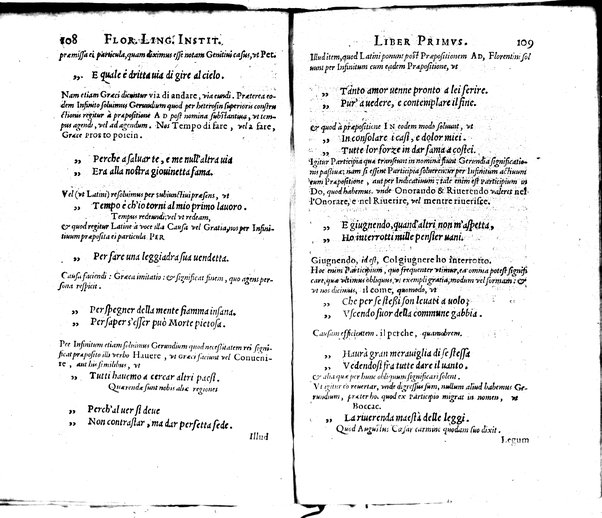 108 FLOR. LING. INSTIT.
præmissa ei particula, quam diximus esse notam Genitivi casus, vt Pet.
„ E quale è dritta via di gire al cielo.
Nam etiam Græci dicuntur via di andare, via eundi. Præterea eo-
dem Infinito soluimus Gerundium quod per heterosin superioris constru
ctionis regitur à præpositione AD post nomina substantiua, vt tem-
pus agendi, vel ad agendum. Nos Tempo di fare, vel à fare,
Græce
„ Perche a saluar te, e me null'altra via
„ Era alla nostra giouinetta fama.
Vel (vt Latini) resoluimus per subiunctiui præsens, vt
„ Tempo è ch'io torni al mio primo lauoro.
Tempus redeundi: vel vt redeam,
& quod regitur Latinè à voce illa Causa vel Gratia, nos per Infini-
tiuum præposita ei particula PER
„ Per fare una leggiadra sua uendetta.
Causa faciendi: Græca imitatio: & significat finem, quo agens per-
sona respicit.
„ Per spegner della mente fiamma insana.
„ Per saper s'esser può Morte pietosa.
Per Infinitum etiam soluimus Gerundium quod necessitatem rei signi-
ficat præposito illi verbo Hauere, vt Græci faciunt vel Conueni-
re, aut his similibus, vt
„ Tutti hauemo a cercar altri paesi.
Quærenda sunt nobis aliæ regiones
„ Perch'al uer si deue
„ Non contrastar, ma dar perfetta fede.
Illud
LIBER PRIMVS. 109
Illud item, quod Latini ponunt post Præpositionem AD, Florentini sol
uunt per Infinitum cum eadem Præpositione, vt
„ Tanto amor uenne pronto a lei serire.
„ Pur' a uedere, e contemplare il fine.
& quod à præpositione IN eodem modo soluunt, vt
„ In consolare i casi, e dolor miei.
„ Tutte lor forze in dar fama a costei.
Igitur Participia quæ transeunt in nomina fiunt Gerundia significatio-
nis passiuæ: nam si essent Participia soluerentur per Infinitum actiuum
cum Præpositione, aut per Indicatiuum; tale enim est Participium in
Do, quod habemus. unde Onorando & Riuerendo valeret nel
l'Onorare, e nel Riuerire, vel mentre riuerisce.
„ E giugnendo, quand'altri non m'aspetta,
„ Ho interrotti mille pensier uani.
Giugnendo, id est, Col giugnere ho interrotto.
Hoc enim Participium, quo frequenter vtimur, ea omnia potest signifi
care, quæ vltimus obliquus, vt exempli gratia, modum vel formam: &
vt nos dicimus, il come, quomodo, vt
„ Che per se stessi son leuati a uolo;
„ Vscendo fuor della commune gabbia.
Causam efficientem. il perche, quamobrem.
„ Haurà gran merauiglia di se stessa
„ Vedendosi fra tutte dare il uanto.
& alia quæ per hunc obliquum significari solent.
Vt igitur eò reuertar, vnde digressus sum, nullum aliud habemus Ge-
rundium, præter ho. quod ex Participio migrat in nomen, vt
Boccac.
„ La riuerenda maestà delle leggi.
Quod Augustus Cæsar carmine quodam suo dixit.
Legum